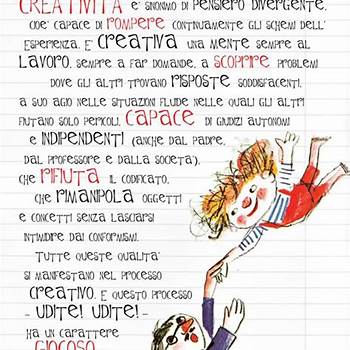 CREATIVITÀ E' SINONIMO DI PENSIERO DIVERGENTE,
CIOE' CAPACE DI ROMPERE CONTINUAMENTE GLI SCHEMI DELL'
ESPERIENZA. E' CREATIVA UNA MENTE SEMPRE AL
LAVORO, SEMPRE A FAR DOMANDE, A SCOPRIRE PROBLEMI
DOVE GLI ALTRI TROVANO RISPOSTE SODDISFACENTI,
A SUO AGIO NELLE SITUAZIONI FLUIDE NELLE QUALI GLI ALTRI
FIUTANO SOLO PERICOLI, CAPACE DI GIUDIZI AUTONOMI
E INDIPENDENTI (ANCHE DAL PADRE,
DAL PROFESSORE E DALLA SOCIETA'),
CHE RIFIUTA IL CODIFICATO,
CHE RIMANIPOLA OGGETTI
E CONCETTI SENZA LASCIARSI
INTIMIDIRE DAI CONFORMISMI.
TUTTE QUESTE QUALITA'
SI MANIFESTANO NEL PROCESSO
CREATIVO. E QUESTO PROCESSO
- UDITE! UDITE! -
HA UN CARATTERE
GIOCOSO